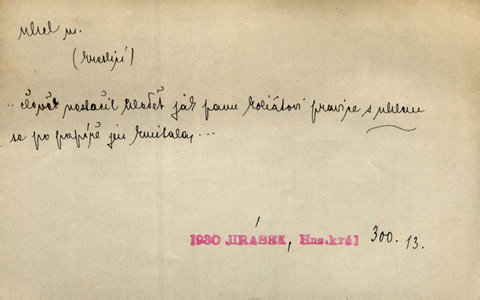 uhel m.
(kreslící)
.. člověk nestačil hledět jak panu Koliátovi pravice s uhlem
se po papíře jen kmitala, ...
1930 JIRÁSEK, Hus.král 300. 13.